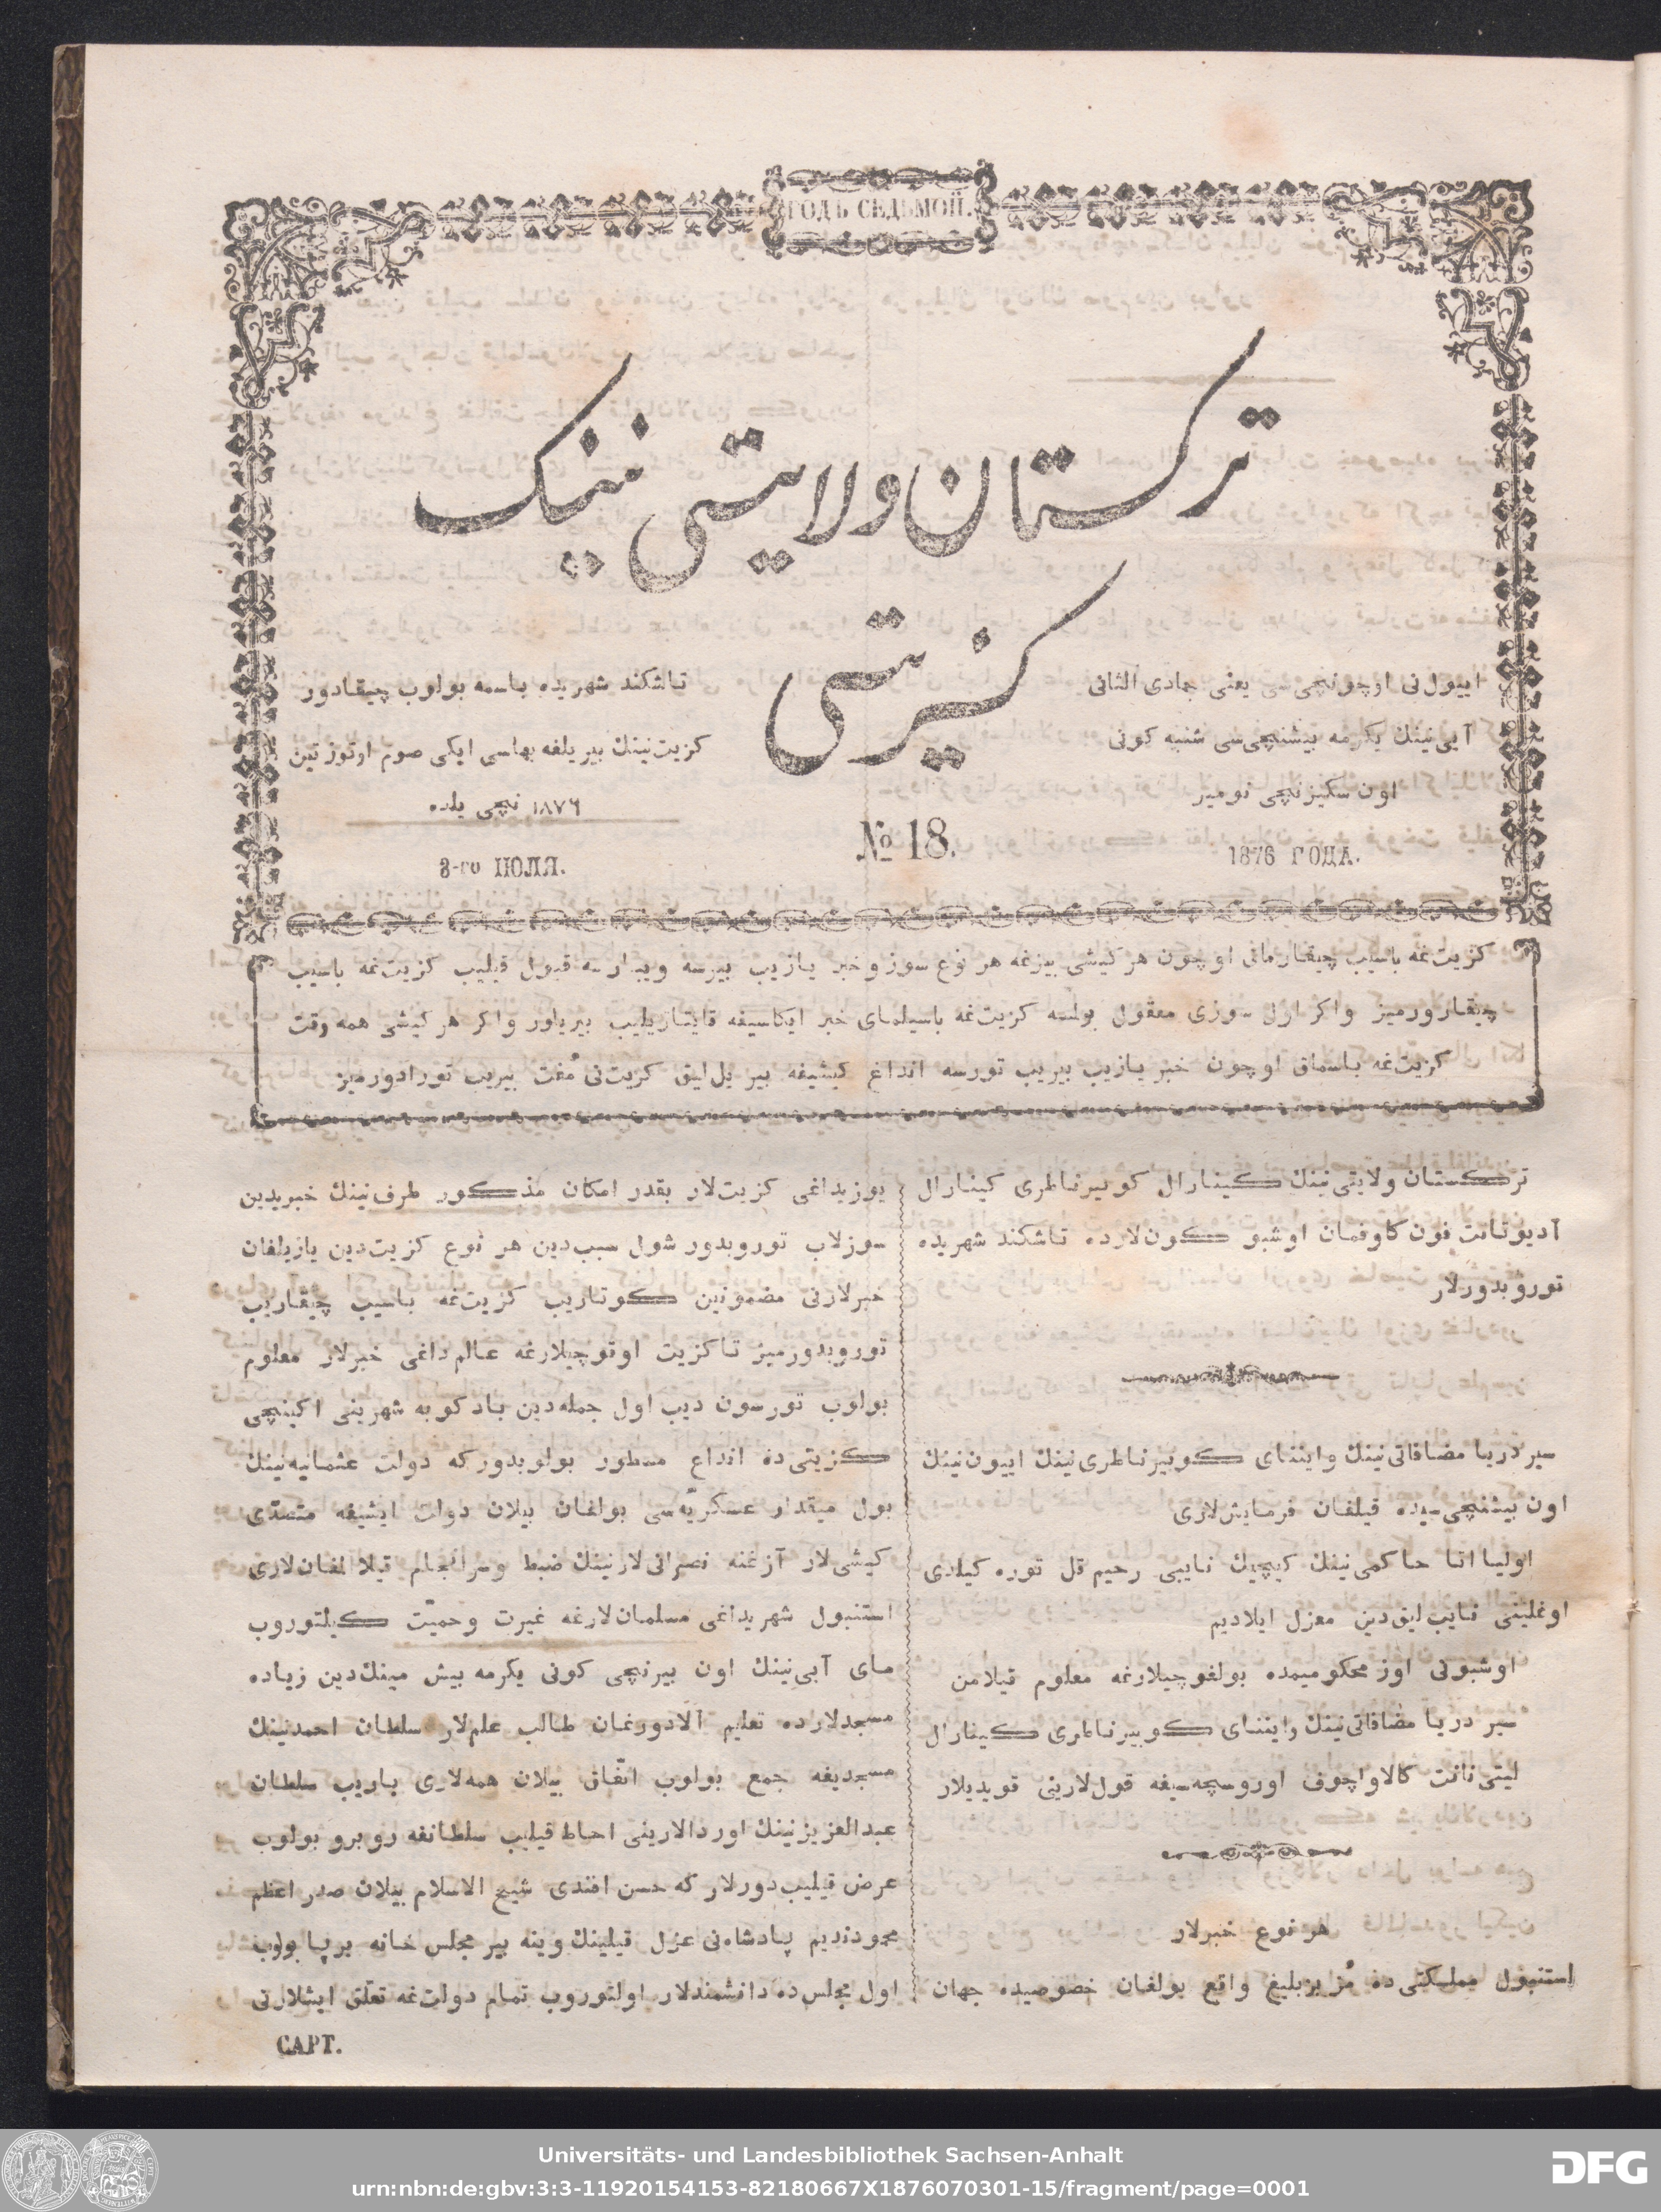 ГОДЪ СЕДЬМОЙ.
ترکستان ولایتی نینک
کزیتی
اییول نی اوچونچی سی یعنی جمادی الثانی
آیی نینك یکرمه بیشنچی سی شنبه کونی
اون سکیزنچی نومیر
تاشکند شهریده باسمه بولوب چیقادور
کزیت نینك بیر یلغه بهاسی ایکی صوم اوتوز تین
۱۸۷۶ نچی یلده
8-го ІЮЛЯ.
№ 18.
1876 ГОДА.
کزیت غه باسیب چیقارمانی اوچون هر کیشی بیزغه هر نوع سوز و خبر یازیب بیرسه ویبارسه قبول قیلیب کزیت غه باسیب
چیقارورمیز واکر اول سوزی معقول بولسه کزیت غه باسیلمای خبر ایکاسیغه قایتاریلیب بیریلور واکر هر کیشی همه وقت
کزیت غه باسماق اوچون خبر یازیب بیریب تورسه انداغ کیشیغه بیر یل لیق کزیت نی مُفت بیریب تورادورمیز
ترکستان ولایتی نینك کینارال کوبیرناطری کینارال
آدیوتانت فون کاوفمان اوشبو کون لارده تاشکند شهریده
توروبدورلار
سیر دریا مضافاتی نینك واینّنای کوبیرناطری نینك اییون نینك
اون بیشنچی سیده قیلغان فرمایش لاری
اولیا اتا حاکمی نینك کیچیك نایبی رحیم قل توره کیلدی
اوغلینی نایب لیق دین معزل ایلادیم
اوشبونی اوز محکومیمده بولغوچیلارغه معلوم قیلامن
سیر دریا مضافاتی نینك واینّنای کوبیرناطری کینارال
لیتی نانت کالاواچوف اوروسچه سیغه قول لارینی قویدیلار
هر نوع خبرلار
استنبول مملکتی ده مُز بزبلیغ واقع بولغان خصوصیده جهان
یوزیداغی کزیت لار بقدر امکان مذکور طرف نینك خبریدین
سوزلاب توروبدور شول سبب دین هر نوع کزیت دین یازیلغان
خبرلارنی مضمونین کوتاریب کزیت غه باسیب چیقاریب
توروبدورمیز تا کزیت اوقوچیلارغه عالم داغی خبرلار معلوم
بولوب تورسون دیب اول جمله دین بادکوبه شهرینی اکینچی
کزیتی ده انداغ مسطور بولوبدور که دولت عثمانیه نینك
بول میقدار عسکریّه سی بولغان بیلان دولت ایشیغه متصدّی
کیشی لار آزغنه نصرانی لارنینك ضبط وسرانجام قیلا المغان لاری
استنبول شهریداغی مسلمان لارغه غیرت وحمیّت کیلتوروب
مای آیی نینك اون بیرنچی کونی یکرمه بیش مینك دین زیاده
مسجدلارده تعلیم آلادورغان طالب علم لار سلطان احمدنینك
مسجدیغه جمع بولوب اتفّاق بیلان همه لاری باریب سلطان
عبدالعزیزنینك اوردالارینی احاط قیلیب سلطانغه روبرو بولوب
عرض قیلیب دورلار که حسن افندی شیخ الاسلام بیلان صدر اعظم
محمودندیم پادشاه نی عزل قیلینك وینه بیر مجلس خانه برپا بولوب
اول مجلس ده دانشمندلار اولتوروب تمام دولت غه تعلّق ایشلارنی
САРТ.
Universitäts- und Landesbibliothek Sachsen-Anhalt
urn:nbn:de:gbv:3:3-11920154153-82180667X1876070301-15/fragment/page=0001
DFG